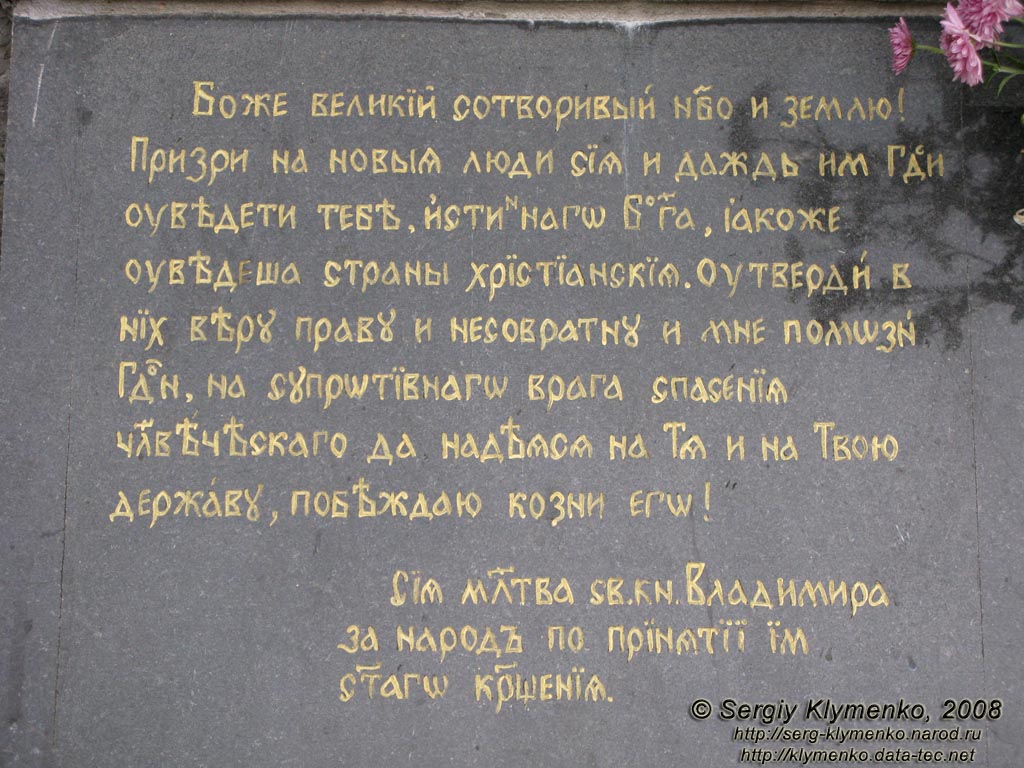 Боже великїй сотворивый нбо и землю!
Призри на новыѧ люди сїѧ и даждь им Гди
оувѣдети тебѣ, истиннагѡ Бога, ꙗкоже
оувѣдеша страны хрїстїанскїѧ. Оутверди в
нїх вѣрꙋ правꙋ и несовратнꙋ и мне помѡзи
Гдⷭ҇и, на сꙋпрѡтївнагѡ врага спасенїѧ
члвѣчѣскаго да надѣѧсѧ на Тѧ и на Твою
держа́вꙋ, побѣждаю козни егѡ!
Сїѧ млтва св. кн. Владимира
за народъ по прїнѧтїї їм
стагѡ крщенїѧ.
© Sergiy Klymenko, 2008
http://serg-klymenko.narod.ru
http://klymenko.data-tec.net